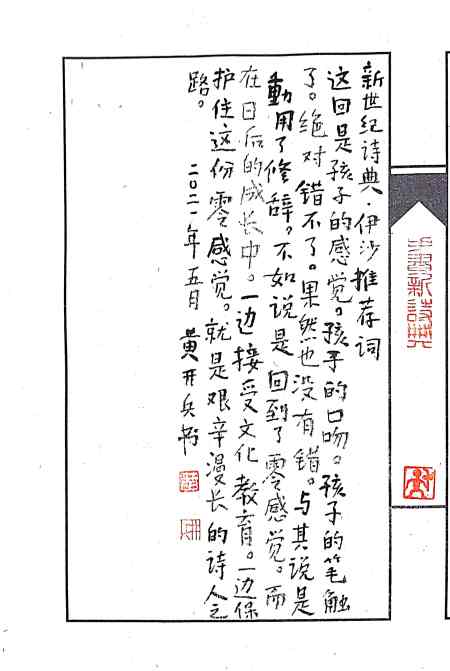 新世纪诗典·伊沙推荐词
这回是孩子的感觉。孩子的口吻。孩子的笔触
了。绝对错不了。果然也没有错。与其说是
動用了修辞。不如说是回到了零感觉。而
在日后的成长中。一边接受文化教育。一边保
护住这份零感觉。就是艰辛漫长的诗人之
路。
二〇二一年五月 黄开兵书